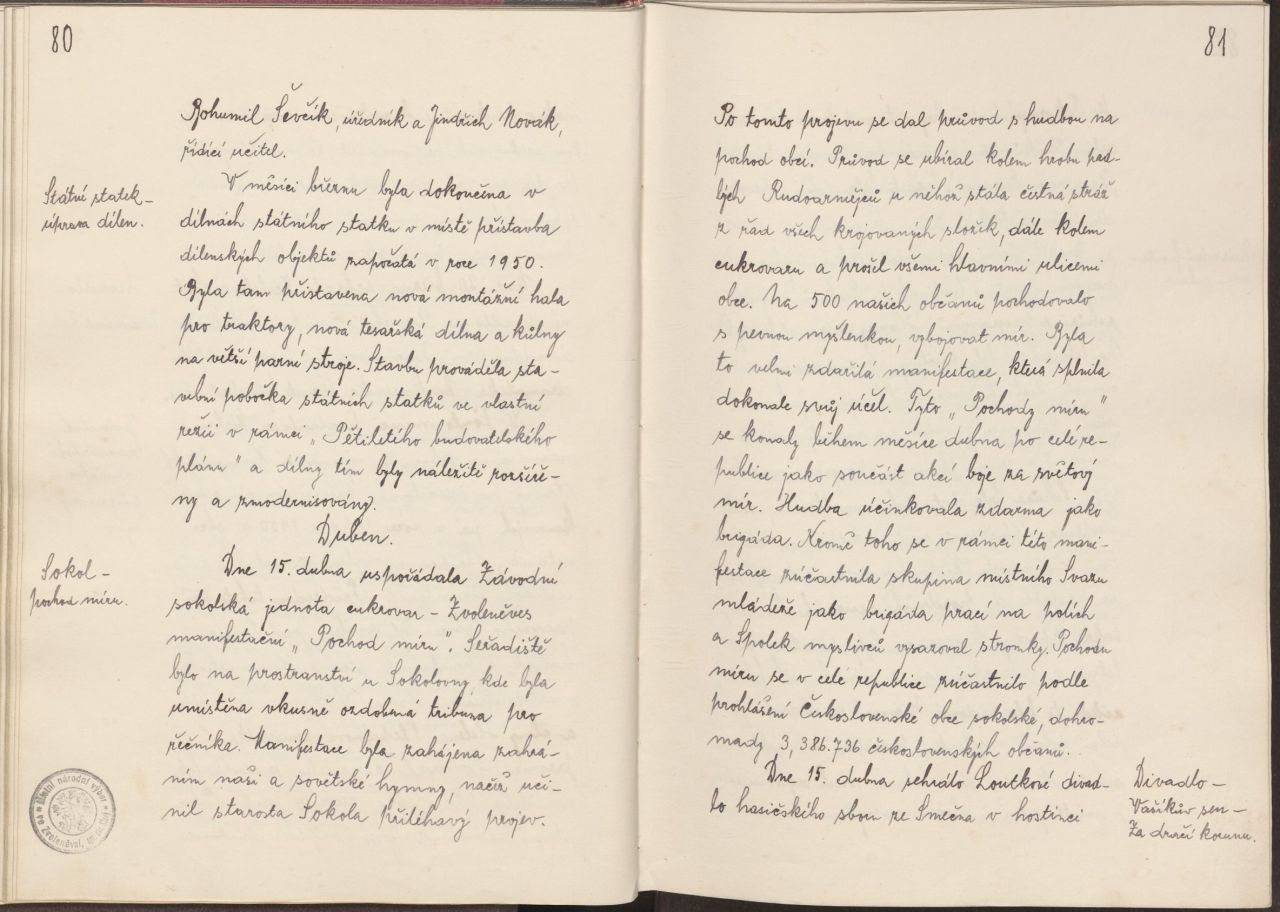 80
Bohumil Ševčík, úředník a Jindřich Novák,
řídící učitel.
Státní statek –
úprava dílen.
V měsíci březnu byla dokončena v
dílnách státního statku v místě přístavba
dílenských objektů započatá v roce 1950.
Byla tam přistavena nová montážní hala
pro traktory, nová tesařská dílna a kůlny
na větší parní stroje. Stavbu prováděla sta-
vební pobočka státních statků ve vlastní
režii v rámci „Pětiletého budovatelského
plánu" a dílny tím byly náležitě rozšíře-
ny a zmodernisovány.
Duben.
Sokol –
pochod míru.
Dne 15. dubna uspořádala Závodní
sokolská jednota cukrovar – Zvoleněves
manifestační „Pochod míru". Seřadiště
bylo na prostranství u Sokolovny, kde byla
umístěna vkusně ozdobená tribuna pro
řečníka. Manifestace byla zahájena zahrá-
ním naší a sovětské hymny, načež uči-
nil starosta Sokola přiléhavý projev.
Místní národní výbor
ve Zvoleněvsi
81
Po tomto projevu se dal průvod s hudbou na
pochod obcí. Průvod se ubíral kolem hrobu pad-
lých Rudoarmějců u něhož stála čestná stráž
z řad všech krojovaných složek, dále kolem
cukrovaru a prošel všemi hlavními ulicemi
obce. Na 500 našich občanů pochodovalo
s pevnou myšlenkou, vybojovat mír. Byla
to velmi zdařilá manifestace, která splnila
dokonale svůj účel. Tyto „Pochody míru"
se konaly během měsíce dubna po celé re-
publice jako součást akcí boje za světový
mír. Hudba účinkovala zdarma jako
brigáda. Kromě toho se v rámci této mani-
festace zúčastnila skupina místního Svazu
mládeže jako brigáda prací na polích
a Spolek myslivců vysazoval stromky. Pochodu
míru se v celé republice zúčastnilo podle
prohlášení Československé obce sokolské, dohro-
mady 3,386.736 československých občanů.
Dne 15. dubna sehrálo Loutkové divad-
lo hasičského sboru ze Smečna v hostinci
Divadlo –
Vašíkův sen –
Za dračí korunu.